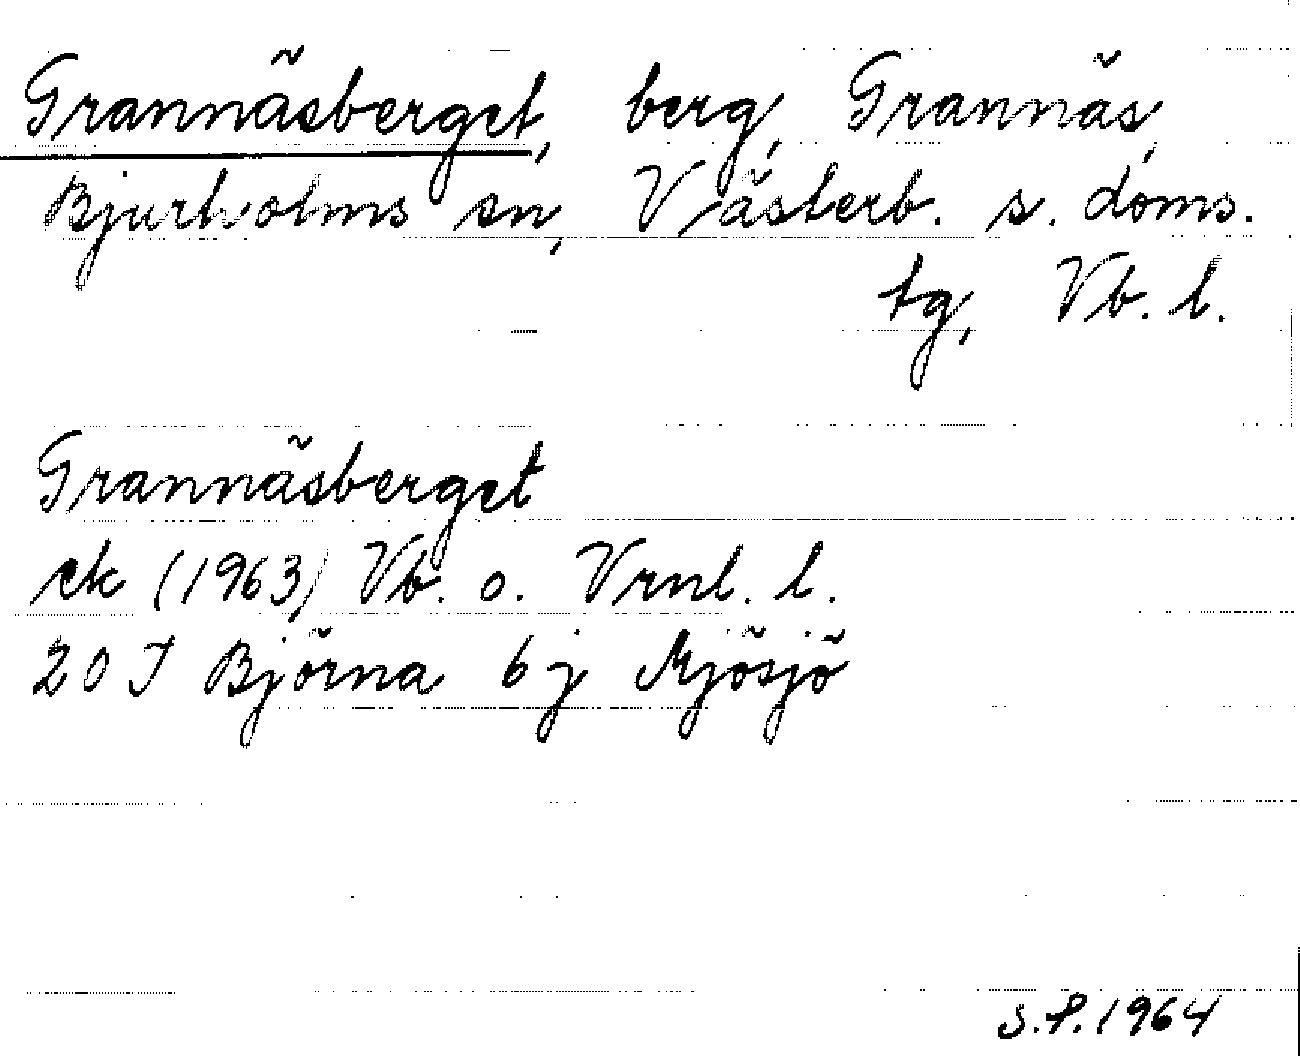 Grannäsberget, berg, Grannäs,
Bjurholms sn, Västerb. s. doms.
tg, Vb. l.
Grannäsberget
ek (1963) Vb. o. Vrnl. l.
20 J Björna 6 j Mjösjö
S.P. 1964